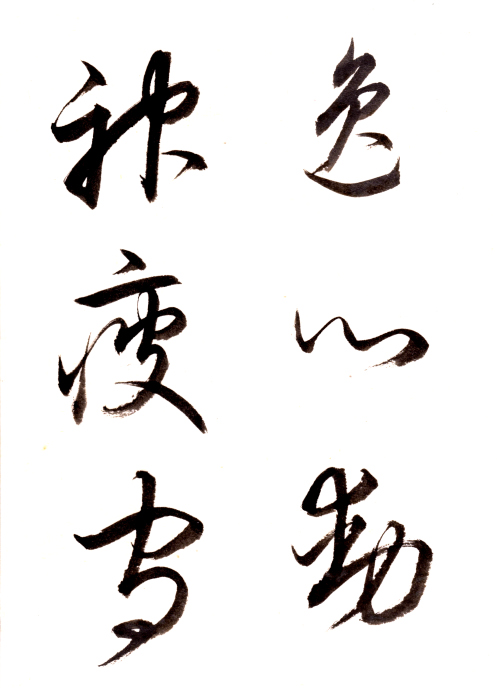 逸心動
神疲守